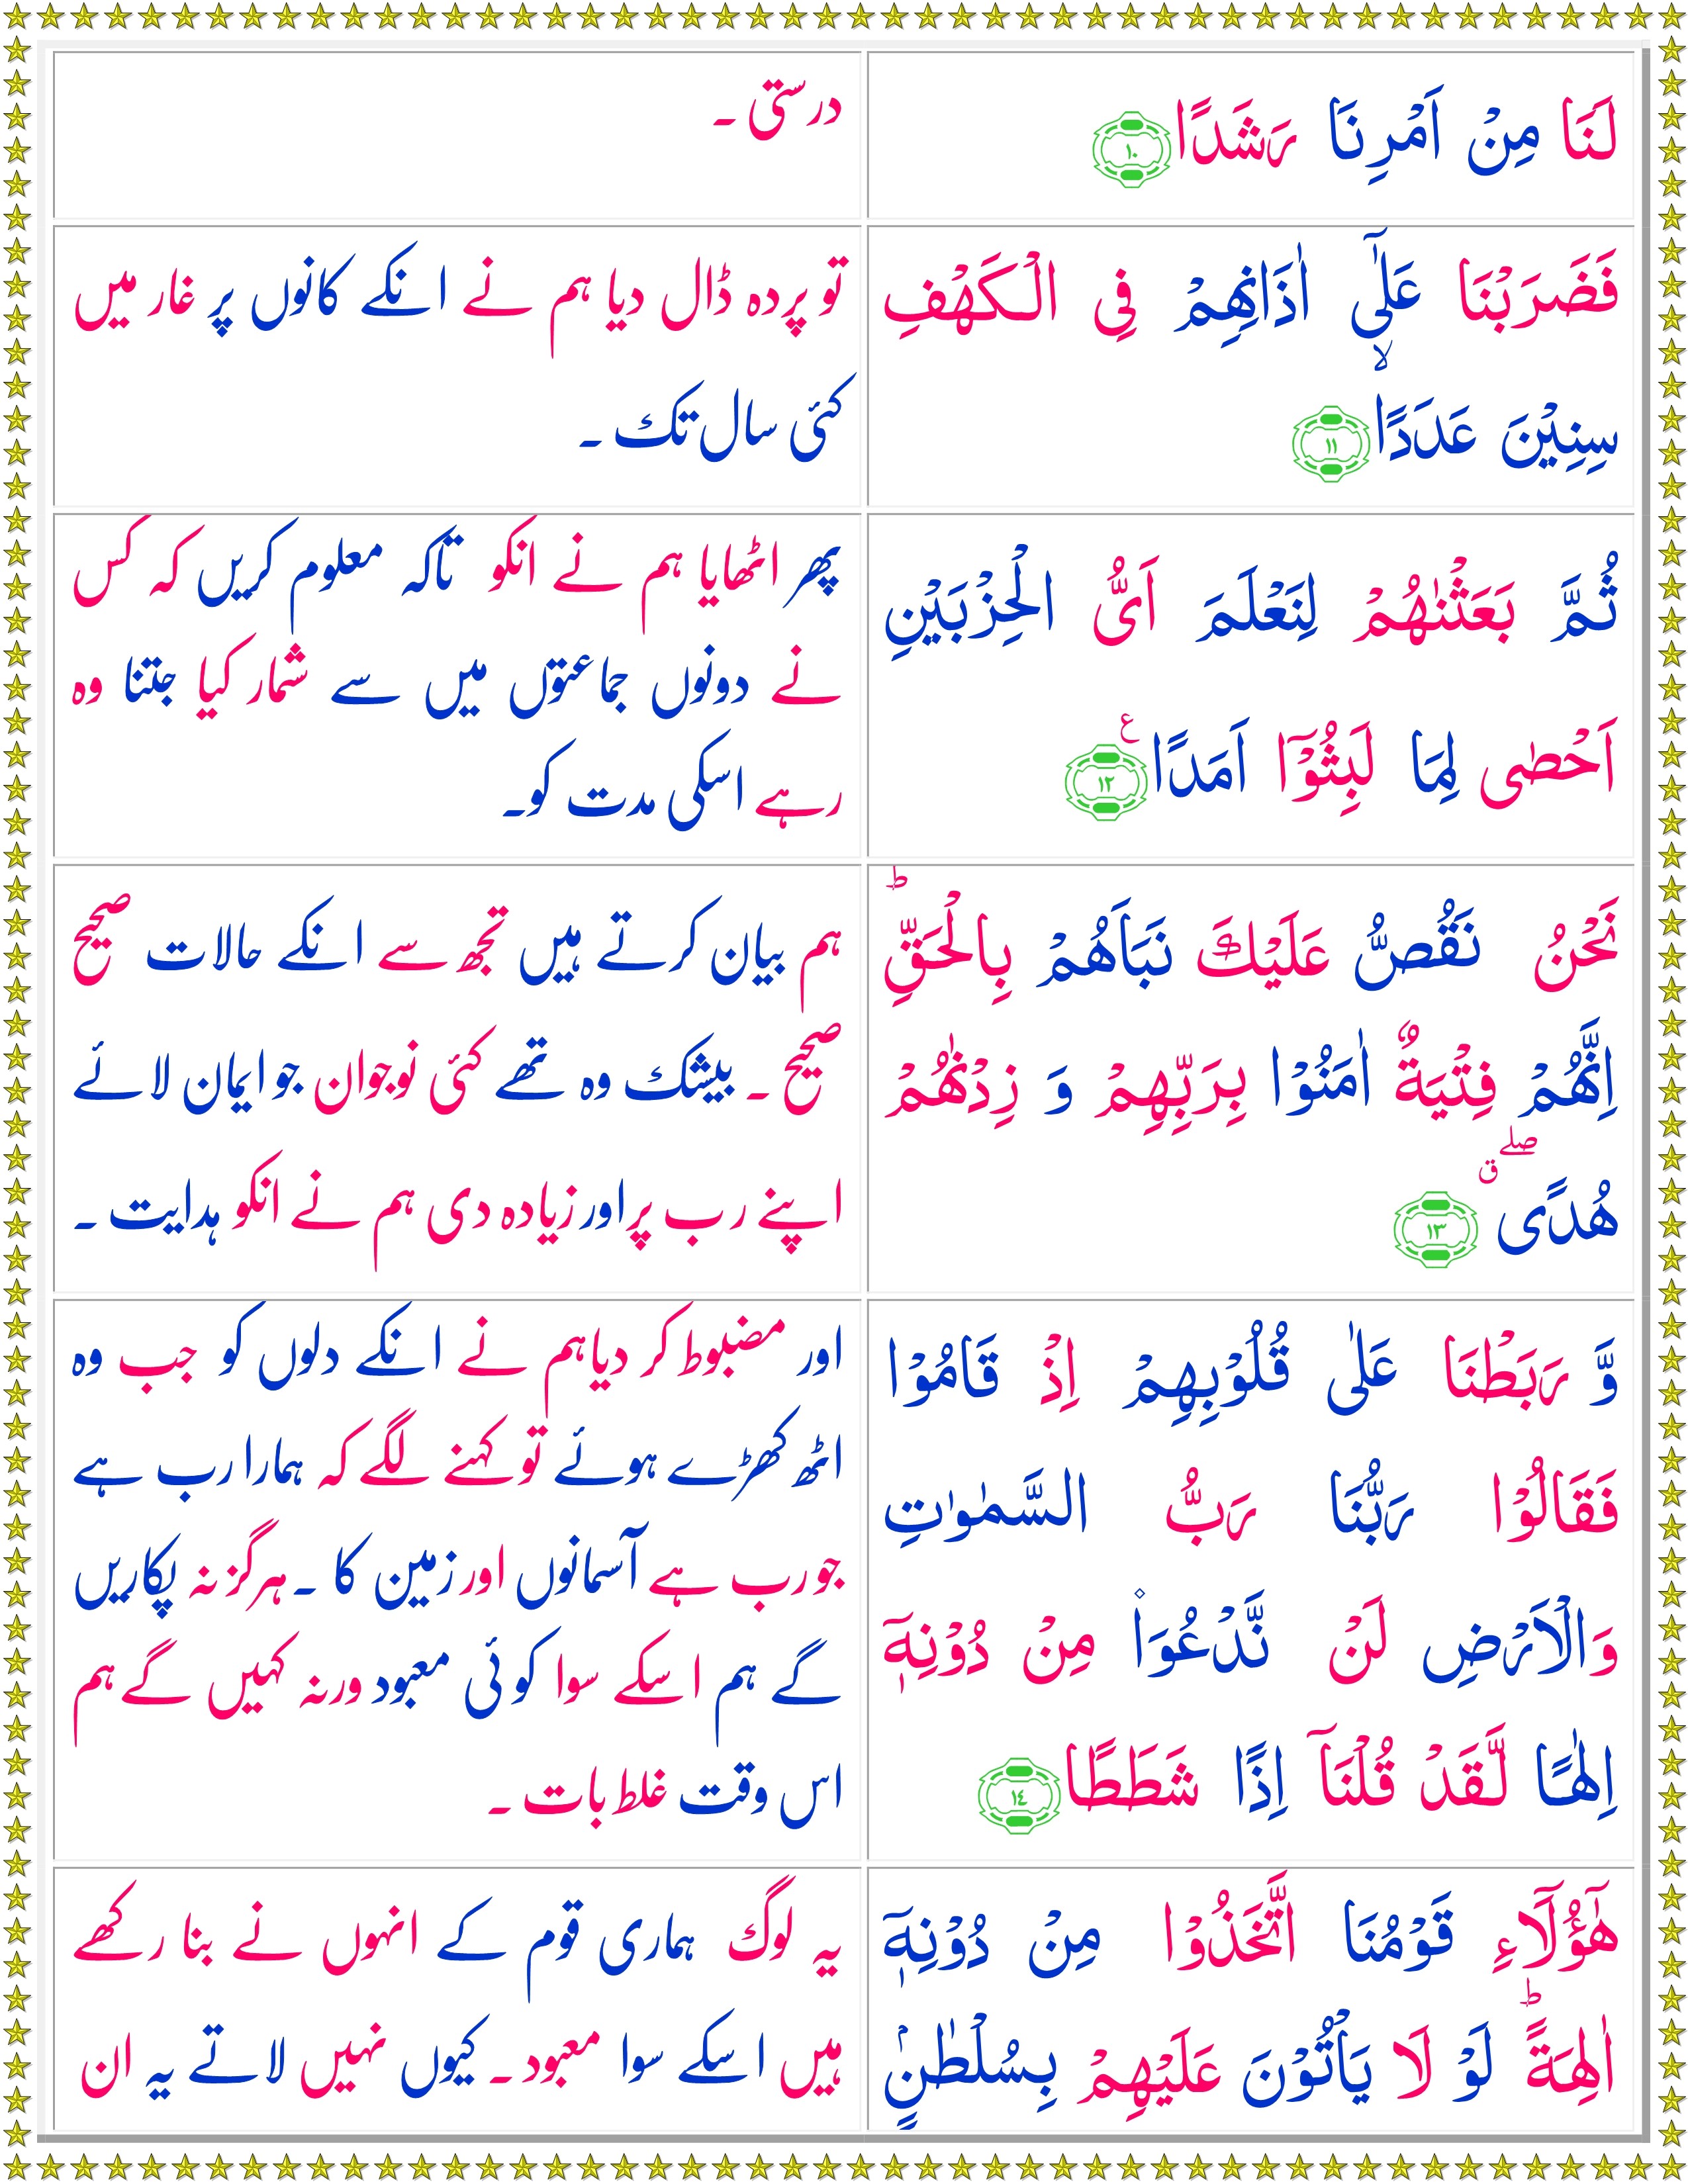 لَنَا مِنْ اَمْرِنَا رَشَدًا ۱۰
درستی ۔
فَضَرَبْنَا عَلٰٓى اٰذَانِهِمْ فِى الْكَهْفِ
سِنِيْنَ عَدَدًا ۙ ۱۱
تو پردہ ڈال دیا ہم نے انکے کانوں پر غار میں
کئی سال تک ۔
ثُمَّ بَعَثْنٰهُمْ لِنَعْلَمَ اَىُّ الْحِزْبَيْنِ
اَحْصٰى لِمَا لَبِثُوْۤا اَمَدًا ۱۲ ع
پھر اٹھایا ہم نے انکو تاکہ معلوم کریں کہ کس
نے دونوں جماعتوں میں سے شمار کیا جتنا وہ
رہے اسکی مدت کو۔
نَحْنُ نَقُصُّ عَلَيْكَ نَبَاَهُمْ بِالْحَقِّ ؕ
اِنَّهُمْ فِتْيَةٌ اٰمَنُوْا بِرَبِّهِمْ وَ زِدْنٰهُمْ
هُدًى ۖ ق ۱۳
ہم بیان کرتے ہیں تجھ سے انکے حالات صحیح
صحیح ۔ بیشک وہ تھے کئی نوجوان جو ایمان لائے
اپنے رب پر اور زیادہ دی ہم نے انکو ہدایت ۔
وَّ رَبَطْنَا عَلٰى قُلُوْبِهِمْ اِذْ قَامُوْا
فَقَالُوْا رَبُّنَا رَبُّ السَّمٰوٰتِ
وَالْاَرْضِ لَنْ نَّدْعُوَا۟ مِنْ دُوْنِهٖۤ
اِلٰهًا لَّقَدْ قُلْنَاۤ اِذًا شَطَطًا ۱٤
اور مضبوط کر دیا ہم نے انکے دلوں کو جب وہ
اٹھ کھڑے ہوئے تو کہنے لگے کہ ہمارا رب ہے
جو رب ہے آسمانوں اور زمین کا ۔ ہرگز نہ پکاریں
گے ہم اسکے سوا کوئی معبود ورنہ کہیں گے ہم
اس وقت غلط بات ۔
هٰٓؤُلَاۤءِ قَوْمُنَا اتَّخَذُوْا مِنْ دُوْنِهٖۤ
اٰلِهَةً ؕ لَوْ لَا يَاْتُوْنَ عَلَيْهِمْ بِسُلْطٰنٍۢ
یہ لوگ ہماری قوم کے انہوں نے بنا رکھے
ہیں اسکے سوا معبود ۔ کیوں نہیں لاتے یہ ان